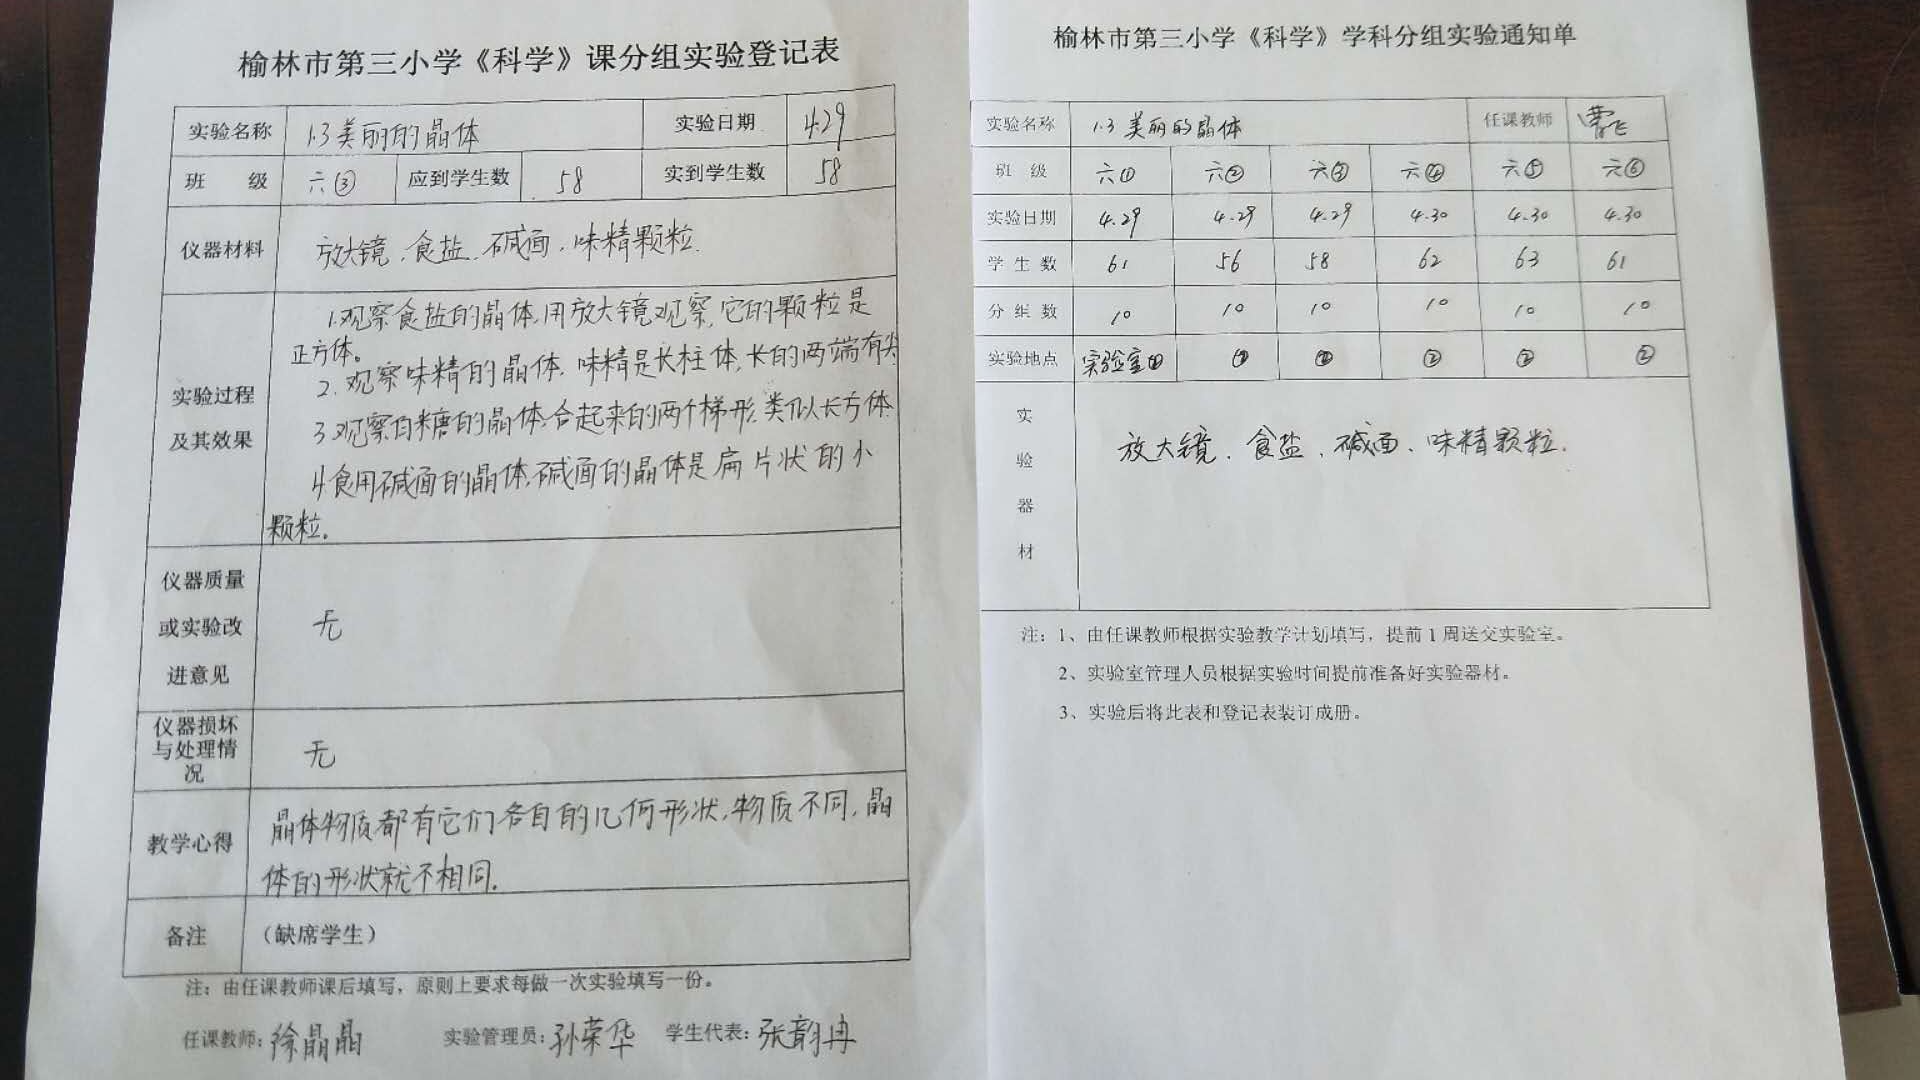 榆林市第三小学《科学》课分组实验登记表
实验名称 1.3美丽的晶体 实验日期 4.29
班 级 六③ 应到学生数 58 实到学生数 58
仪器材料 放大镜、食盐、碱面、味精颗粒.
实验过程
及其效果
1.观察食盐的晶体,用放大镜观察,它的颗粒是
正方体。
2.观察味精的晶体.味精是长柱体,长的两端有尖
3.观察白糖的晶体,合起来的两个梯形,类似长方体
4.食用碱面的晶体,碱面的晶体是扁片状的小
颗粒。
仪器质量
或实验改
进意见
无
仪器损坏
与处理情
况
无
教学心得
晶体物质都有它们各自的几何形状,物质不同,晶
体的形状就不相同.
备注 (缺席学生)
注：由任课教师课后填写，原则上要求每做一次实验填写一份。
任课教师:徐晶晶 实验管理员:孙荣华 学生代表:张韵冉
榆林市第三小学《科学》学科分组实验通知单
实验名称 1.3 美丽的晶体 任课教师
班 级 六① 六② 六③ 六④ 六⑤ 六⑥
实验日期 4.29 4.29 4.29 4.30 4.30 4.30
学 生 数 61 56 58 62 63 61
分 组 数 10 10 10 10 10 10
实验地点 实验室② ② ② ② ② ②
实
验
器
材
放大镜、食盐、碱面、味精颗粒.
注：1、由任课教师根据实验教学计划填写，提前1周送交实验室。
2、实验室管理人员根据实验时间提前准备好实验器材。
3、实验后将此表和登记表装订成册。